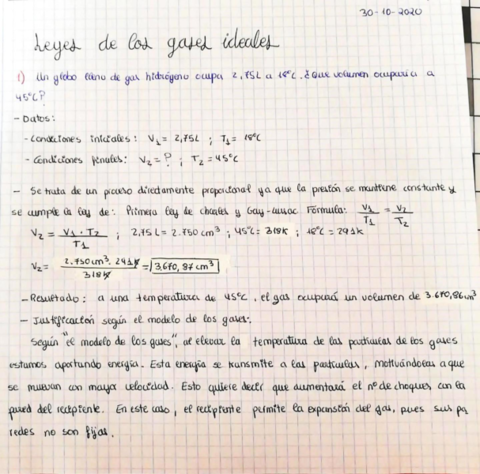 30-10-2020
Leyes de los gases ideales
1) Un globo lleno de gas hidrógeno ocupa 2,75L a 18ºC. ¿Que volumen ocuparía a
45ºC?
- Datos:
- Condiciones iniciales: V₁ = 2,75L ; T₁ = 18ºC
- Condiciones finales: V₂ = ? ; T₂ = 45ºC
- Se trata de un proceso directamente proporcional ya que la presión se mantiene constante y
se cumple la ley de: Primera ley de charles y Gay-lussac Fórmula: V₁/T₁ = V₂/T₂
V₂ = V₁ · T₂ / T₁ ; 2,75L = 2.750 cm³ ; 45ºC = 318k ; 18ºC = 291k
V₂ = 2.750cm³ · 291k / 318k = 3.670,87 cm³
- Resultado: a una temperatura de 45ºC, el gas ocupará un volumen de 3.670,86cm³
- Justificación según el modelo de los gases:
Según "el modelo de los gases", al elevar la temperatura de las partículas de los gases
estamos aportando energía. Esta energía se transmite a las partículas, motivándolas a que
se muevan con mayor velocidad. Esto quiere decir que aumentará el nº de choques con la
pared del recipiente. En este caso, el recipiente permite la expansión del gas, pues sus pa
redes no son fijas.